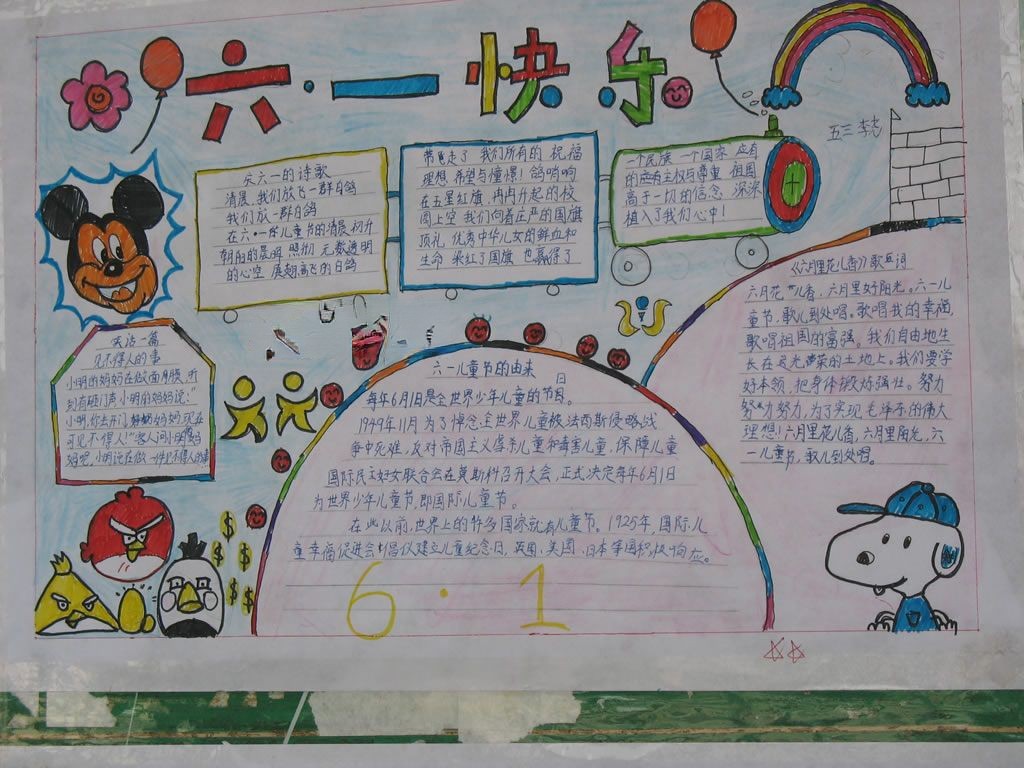 六·一快乐
五三 李
永六一的诗歌
清晨 我们放飞一群白鸽
我们放一群白鸽
在六·一儿童节的清晨 初升
朝阳的晨曦 照彻 无数透明
的心空 展翅高飞的白鸽
带走了 我们所有的 祝福
理想 希望与憧憬! 鸽哨响
在五星红旗 冉冉升起的校
园上空 我们向着庄严的国旗
顶礼 优秀中华儿女的鲜血和
生命 染红了国旗 也赢得了
一个民族 一个国家 应有
的 主权与尊重 祖国
高于一切的信念 深深
植入了我们心中!
笑话一篇
见不得人的事
小明的妈妈在做面膜,听
到有砸门声 小明的妈妈说:“
小明,你去开门 妈妈现在
可见不得人!”客人问小明妈
妈呢,小明说在做一件见不得人的事
《六月里花儿香》歌曲词
六月花儿香,六月里好阳光。六一儿
童节,歌儿到处唱。歌唱我的幸福,
歌唱祖国的富强。我们自由地生
长在 光荣的土地上。我们要学
好本领,把身体锻炼强壮。努力
努力努力,为了实现毛泽东的伟大
理想!六月里花儿香,六月里阳光,六
一儿童节,歌儿到处唱。
六一儿童节的由来
每年6月1日是全世界少年儿童的节日。
1949年11月为了悼念全世界儿童被法西斯侵略战
争中死难,反对帝国主义虐杀儿童和毒害儿童,保障儿童
国际民主妇女联合会在莫斯科召开大会,正式决定每年6月1日
为世界少年儿童节,即国际儿童节。
在此以前,世界上的许多国家就有儿童节。1925年,国际儿
童幸福促进会倡仪建立儿童纪念日,英国、美国、日本等国积极响应。
6·1